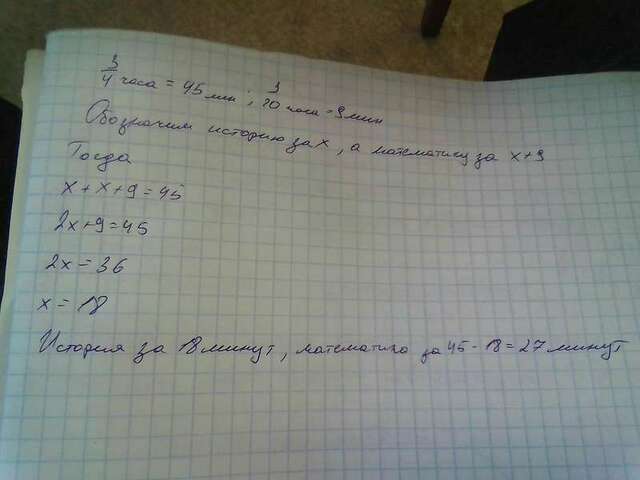 3/4 часа = 45 мин ; 3/20 часа = 9 мин
Обозначим историю за x , а математику за x+9
Тогда
x + x + 9 = 45
2x+9=45
2x = 36
x = 18
История за 18 минут , математика за 45 - 18 = 27 минут